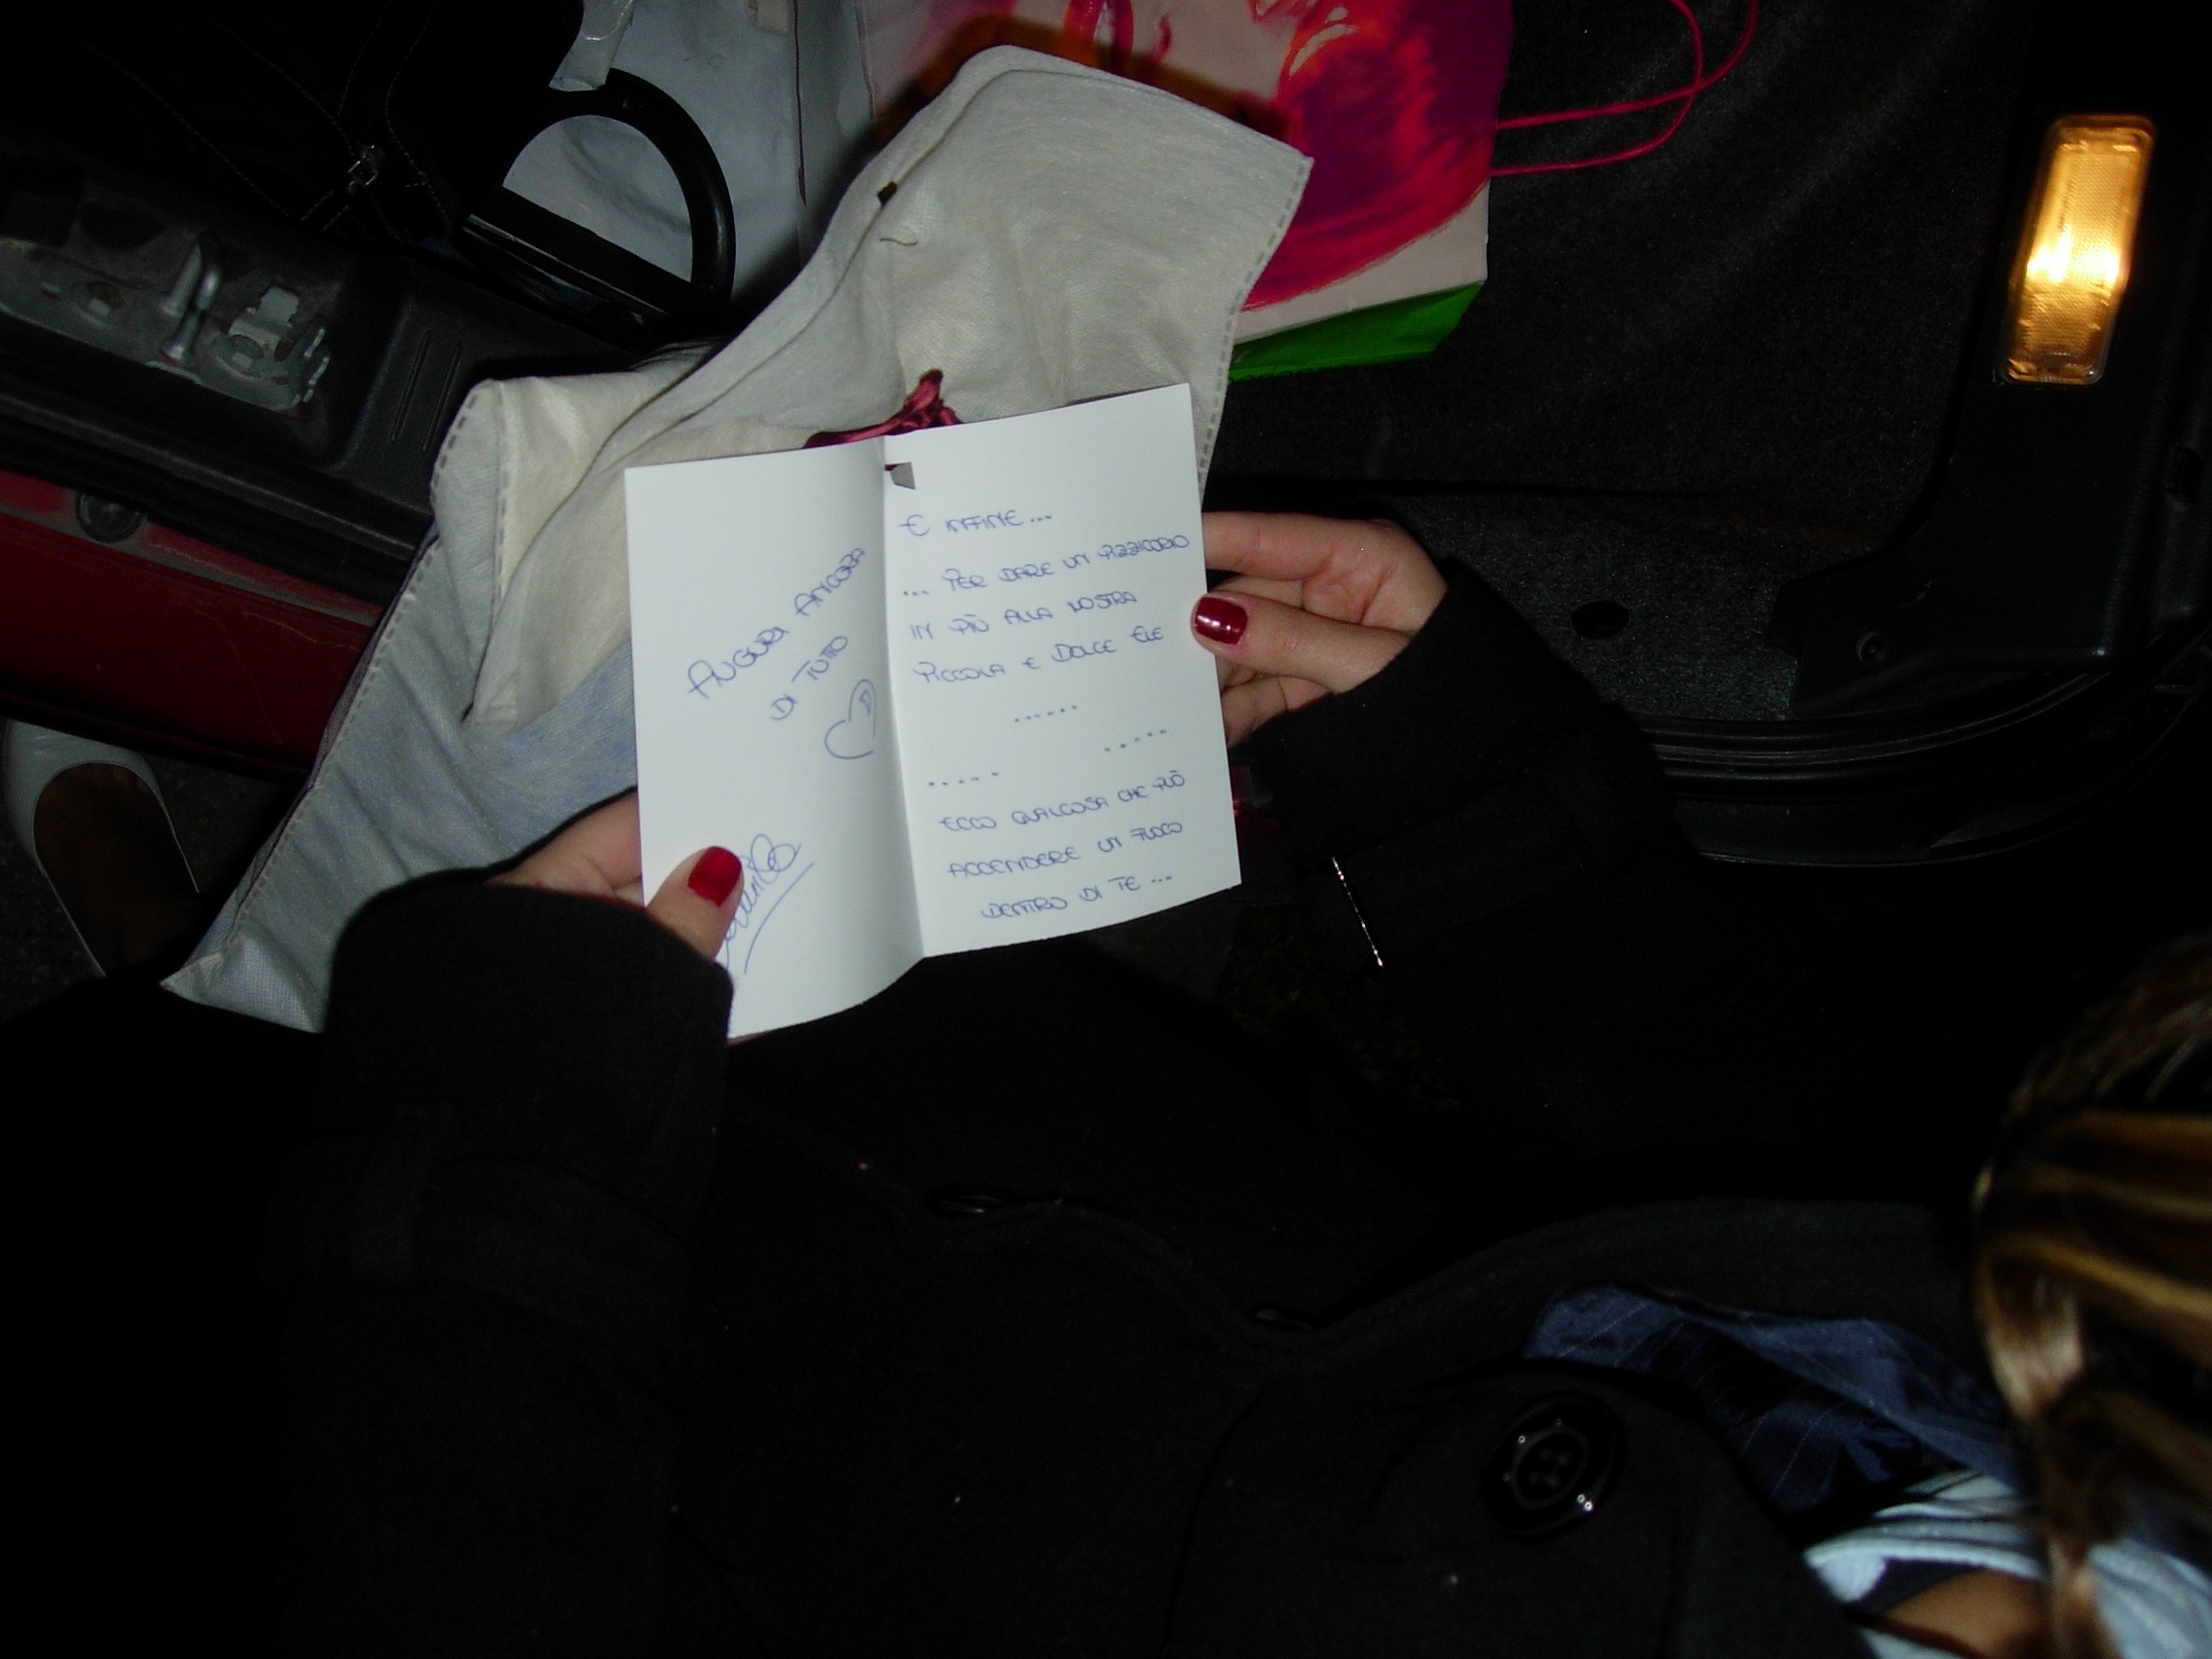 AUGURI ANCORA
DI TUTTO
E INFINE...
... PER DARE UN PIZZICORIO
IN PIÙ ALLA NOSTRA
PICCOLA E DOLCE ELE
......
.....
.....
ECCO QUALCOSA CHE PUÒ
ACCENDERE UN FUOCO
DENTRO DI TE...